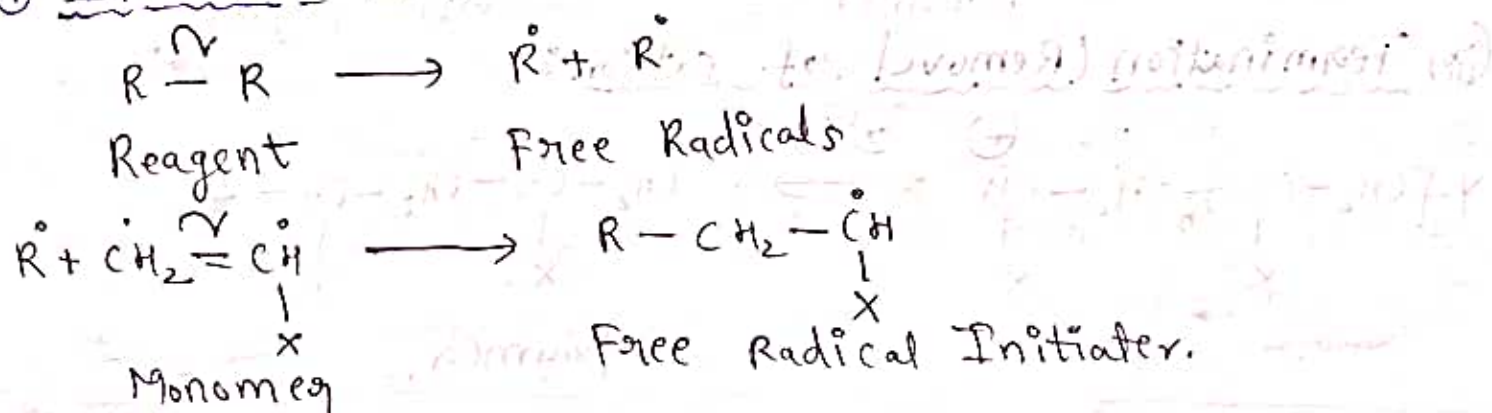 R – R ⟶ R• + R•
Reagent Free Radicals
R• + ĊH₂ = ĊH ⟶ R – CH₂ – ĊH
| |
X X
Monomer Free Radical Initiater.